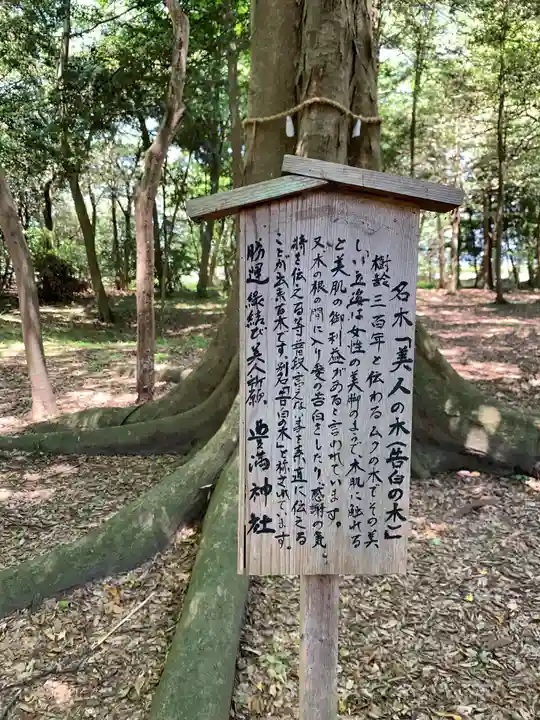 名木「美人の木(告白の木)」
樹齢三百年と伝わるムクの木でその美
しい立姿は女性の美脚のようで、木肌に触れる
と美肌の御利益があると言われています。
又木の根の間に入り愛の告白をしたり、感謝の気
持を伝える等普段言えない事を素直に伝える
ことが出来る木です。別名「告白の木」と称されています。
勝運 縁結び 美人祈願 豊満神社